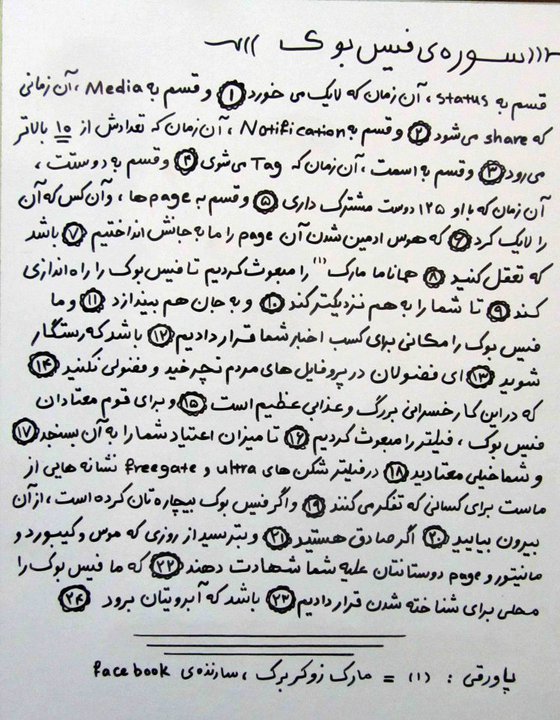 سوره‌ی فیس بوک
قسم به status ، آن زمان که لایک می خورد ۱ و قسم به Media ، آن زمانی
که share می شود ۲ و قسم به Notification ، آن زمان که تعدادش از ۱۰ بالاتر
می رود ۳ و قسم به اسمت ، آن زمان که Tag می شوی ۴ و قسم به دوستت ،
آن زمان که با او ۱۲۵ دوست مشترک داری ۵ و قسم به page ها ، و آن کس که آن
را لایک کرد ۶ که هوس ادمین شدن آن page را ما به جانش انداختیم ۷ باشد
که تعقل کنید ۸ همانا ما مارک (۱) را مبعوث کردیم تا فیس بوک را راه اندازی
کند ۹ تا شما را به هم نزدیکتر کند ۱۰ و به جان هم بیندازد ۱۱ و ما
فیس بوک را مکانی برای کسب اخبار شما قرار دادیم ۱۲ باشد که رستگار
شوید ۱۳ ای فضولان در پروفایل های مردم نچرخید و فضولی نکنید ۱۴
که در این کار خسرانی بزرگ و عذابی عظیم است ۱۵ و برای قوم معتادان
فیس بوک ، فیلتر را مبعوث کردیم ۱۶ تا میزان اعتیاد شما را به آن بسنجد ۱۷
و شما خیلی معتادید ۱۸ در فیلتر شکن های ultra و freegate نشانه هایی از
ماست برای کسانی که تفکر می کنند ۱۹ و اگر فیس بوک بیچاره تان کرده است ، از آن
بیرون بیایید ۲۰ اگر صادق هستید ۲۱ و بترسید از روزی که موس و کیبورد و
مانیتور و page دوستانتان علیه شما شهادت دهند ۲۲ که ما فیس بوک را
محلی برای شناخته شدن قرار دادیم ۲۳ باشد که آبرویتان برود ۲۴
پاورقی : (۱) = مارک زوکربرگ ، سازنده‌ی facebook